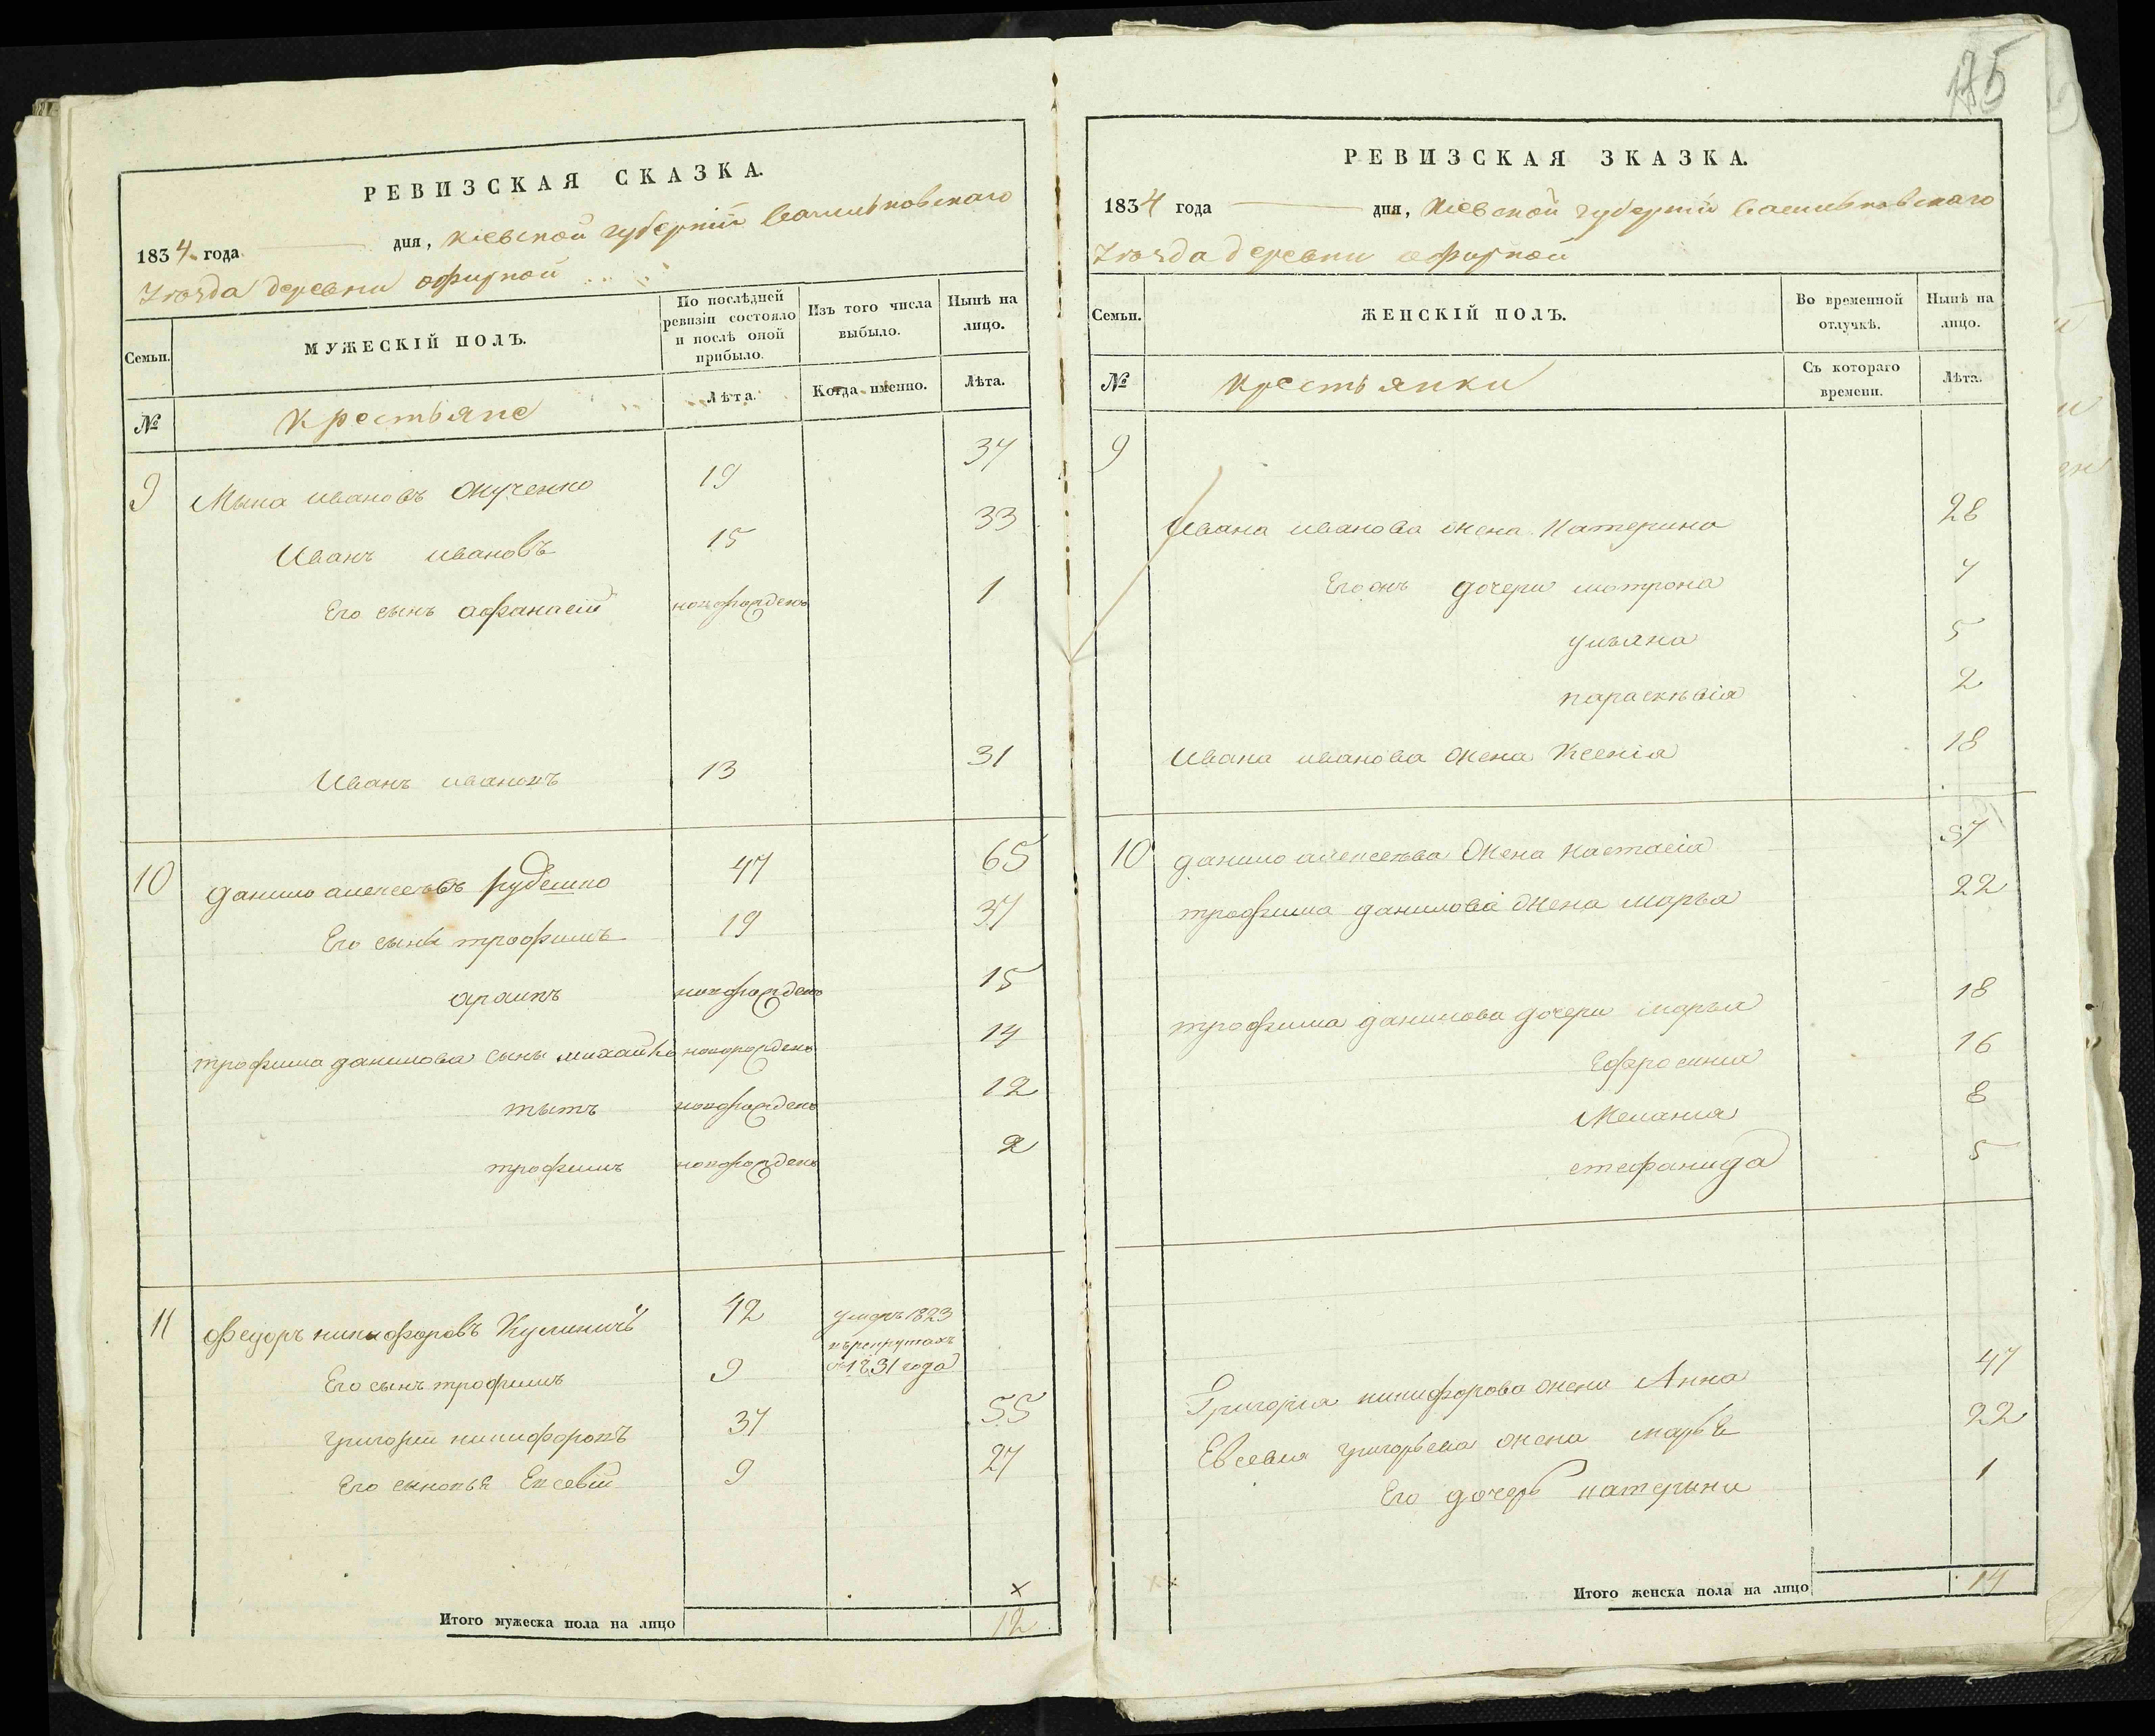 175
РЕВИЗСКАЯ СКАЗКА.
1834 года дня, Кіевской губерніи Васильковскаго
Уезда деревни офирной
Семьи.
МУЖЕСКІЙ ПОЛЪ.
По послѣдней ревизіи состояло и послѣ оной прибыло.
Изъ того числа выбыло.
Нынѣ на лицо.
№
Крестьяне
Лѣта.
Когда именно.
Лѣта.
9 Мына ивановъ 19 37
Иванъ ивановъ 15 33
Его сынъ афанасій новорожденъ 1
Иванъ ивановъ 13 31
10 данило алексеевъ рудешко 47 65
Его сынъ трофимъ 19 37
архипъ новорожденъ 15
трофима данилова сыны михайло новорожденъ 14
тытъ новорожденъ 12
трофимъ новорожденъ 2
11 федоръ никифоровъ 42 умеръ 1823
Его сынъ трофимъ 9 въ рекрутахъ
съ 1831 года
григорій никифоровъ 37 55
Его сыновья Евсевій 9 27
×
Итого мужеска пола на лицо 12
РЕВИЗСКАЯ ЗКАЗКА.
1834 года дня, Кіевской губерніи Васильковскаго
Уезда деревни офирной
Семьи.
ЖЕНСКІЙ ПОЛЪ.
Во временной отлучкѣ.
Нынѣ на лицо.
№
Крестьянки
Съ котораго времени.
Лѣта.
9
Ивана иванова жена Катерина 28
дочери мотрона 7
ульяна 5
параскѣвія 2
Ивана иванова жена Ксенія 18
10 данило алексеева жена настасія 57
трофима данилова жена марья 22
трофима данилова дочери марья 18
Ефросинія 16
Меланія 8
стефанида 5
Григорія никифорова жена Анна 47
Евсевія григорьева жена марья 22
Его дочерь катерина 1
Итого женска пола на лицо 14